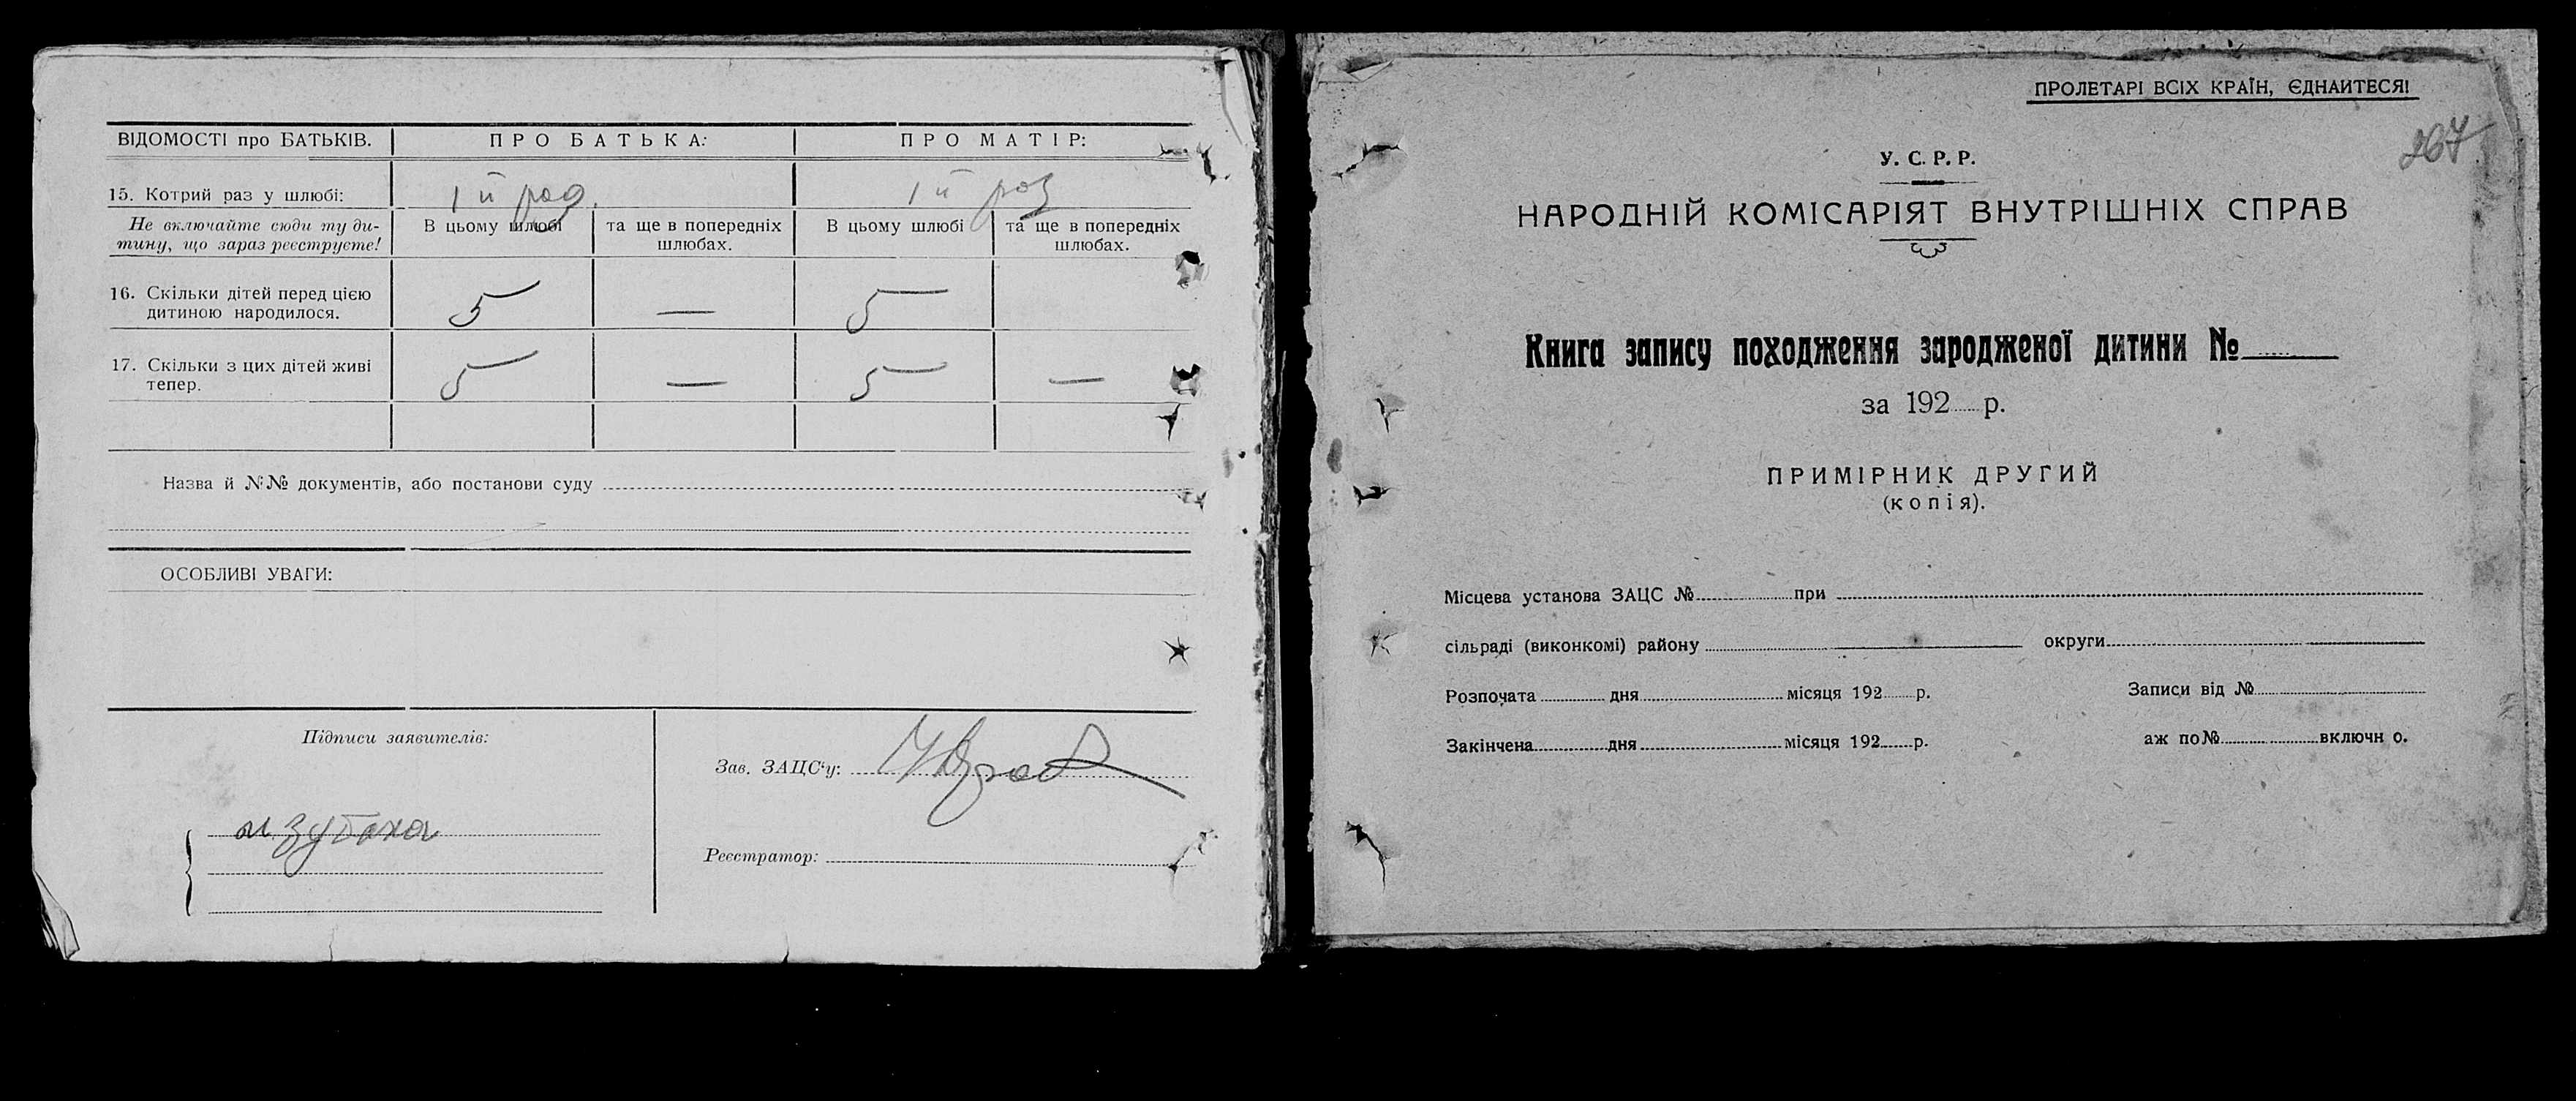 ВІДОМОСТІ про БАТЬКІВ. ПРО БАТЬКА: ПРО МАТІР:
15. Котрий раз у шлюбі: 1й раз. 1й раз
Не включайте сюди ту ди-
тину, що зараз реєструєте!
В цьому шлюбі
та ще в попередніх
шлюбах.
В цьому шлюбі
та ще в попередніх
шлюбах.
16. Скільки дітей перед цією
дитиною народилося.
5 — 5
17. Скільки з цих дітей живі
тепер.
5 — 5 —
Назва й №№ документів, або постанови суду
ОСОБЛИВІ УВАГИ:
Підписи заявителів:
Зав. ЗАЦС'у:
Реєстратор:
ПРОЛЕТАРІ ВСІХ КРАЇН, ЄДНАЙТЕСЯ!
267
У. С. Р. Р.
НАРОДНІЙ КОМІСАРІЯТ ВНУТРІШНІХ СПРАВ
Книга запису походження зародженої дитини №
за 192 р.
ПРИМІРНИК ДРУГИЙ
(копія).
Місцева установа ЗАЦС № при
сільраді (виконкомі) району округи
Розпочата дня місяця 192 р. Записи від №
Закінчена дня місяця 192 р. аж по № включн о.